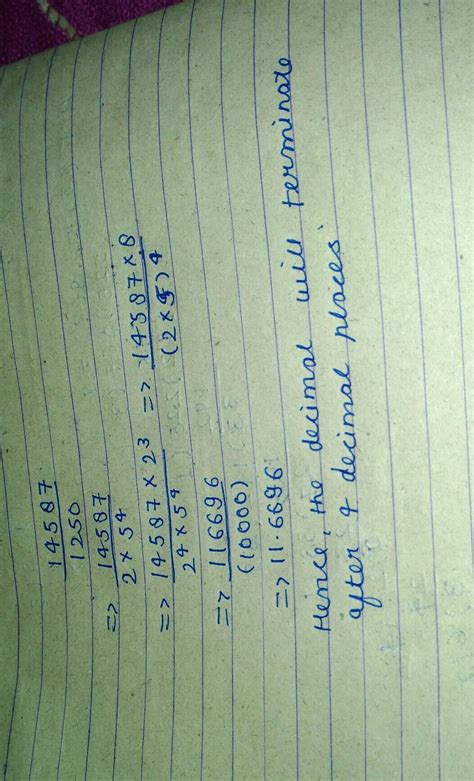 14587
1250
=> 14587
2 × 5⁴
=> 14587 × 2³ => 14587 × 8
2⁴ × 5⁴ (2 × 5)⁴
=> 116696
(10000)
=> 11.6696
Hence, the decimal will terminate
after 4 decimal places.